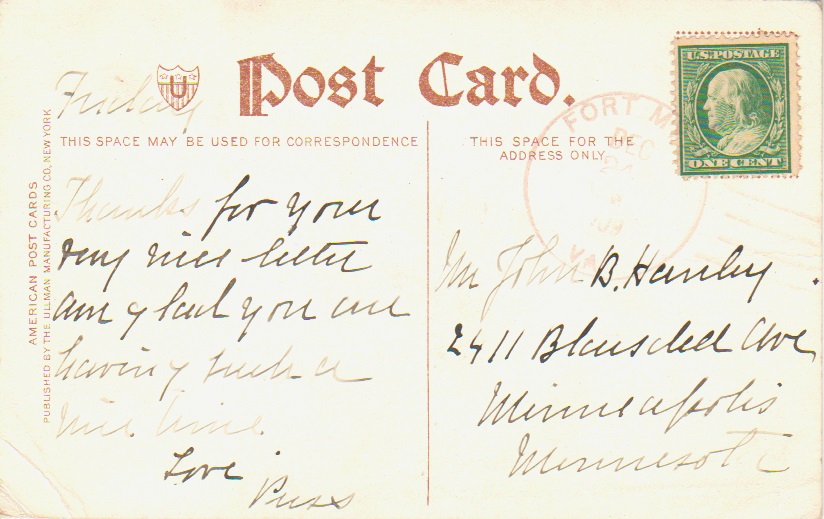 Post Card.
U
Friday
THIS SPACE MAY BE USED FOR CORRESPONDENCE
Thanks for your
very nice letter
am glad you are
having such a
nice time
Love
Puss
AMERICAN POST CARDS
PUBLISHED BY THE ULLMAN MANUFACTURING CO, NEW YORK
THIS SPACE FOR THE
ADDRESS ONLY
U.S. POSTAGE
ONE CENT
FORT M
DEC
Mr John B. Hanley
2411 Blaisdell Ave
Minneapolis
Minnesota